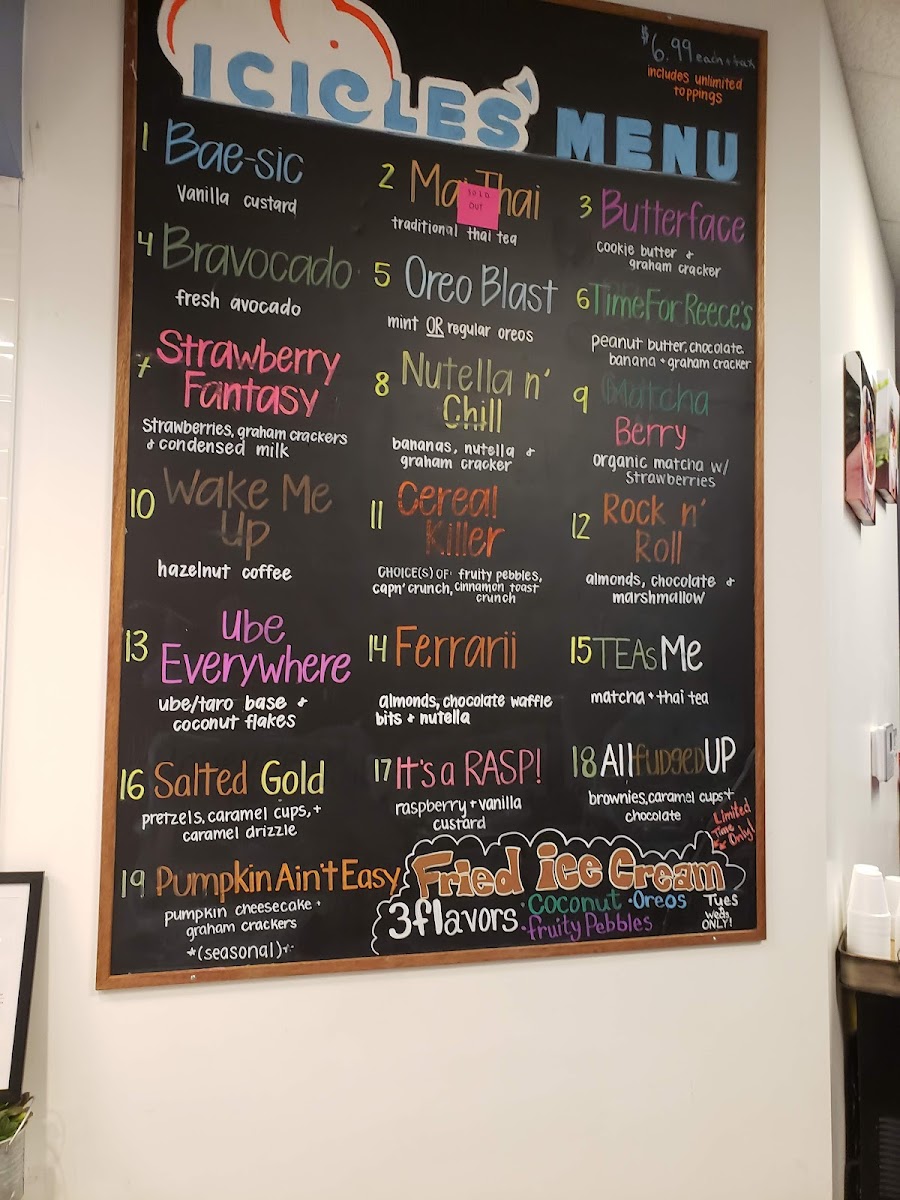 ICICLES MENU
$6.99 each + tax
includes unlimited
toppings
1 Bae-sic
Vanilla custard
2 Mai Thai
SOLD
OUT
traditional thai tea
3 Butterface
cookie butter &
graham cracker
4 Bravocado
fresh avocado
5 Oreo Blast
mint OR regular oreos
6 Time For Reece's
peanut butter, chocolate
banana + graham cracker
7 Strawberry
Fantasy
strawberries, graham crackers
& condensed milk
8 Nutella n'
Chill
bananas, nutella &
graham cracker
9 Matcha
Berry
organic matcha w/
strawberries
10 Wake Me
Up
hazelnut coffee
11 Cereal
Killer
CHOICE(S) OF: fruity pebbles,
capn' crunch, cinnamon toast
crunch
12 Rock n'
Roll
almonds, chocolate &
marshmallow
13 Ube
Everywhere
ube/taro base &
coconut flakes
14 Ferrarii
almonds, chocolate waffle
bits & nutella
15 TEAs Me
matcha + thai tea
16 Salted Gold
pretzels, caramel cups, +
caramel drizzle
17 It's a RASP!
raspberry + vanilla
custard
18 All fudged UP
brownies, caramel cups +
chocolate
19 Pumpkin Ain't Easy
pumpkin cheesecake +
graham crackers
*(seasonal)*
Limited
Time
Only!
Fried Ice Cream
3 flavors · Coconut · Oreos
· Fruity Pebbles
Tues
+
Weds
ONLY!